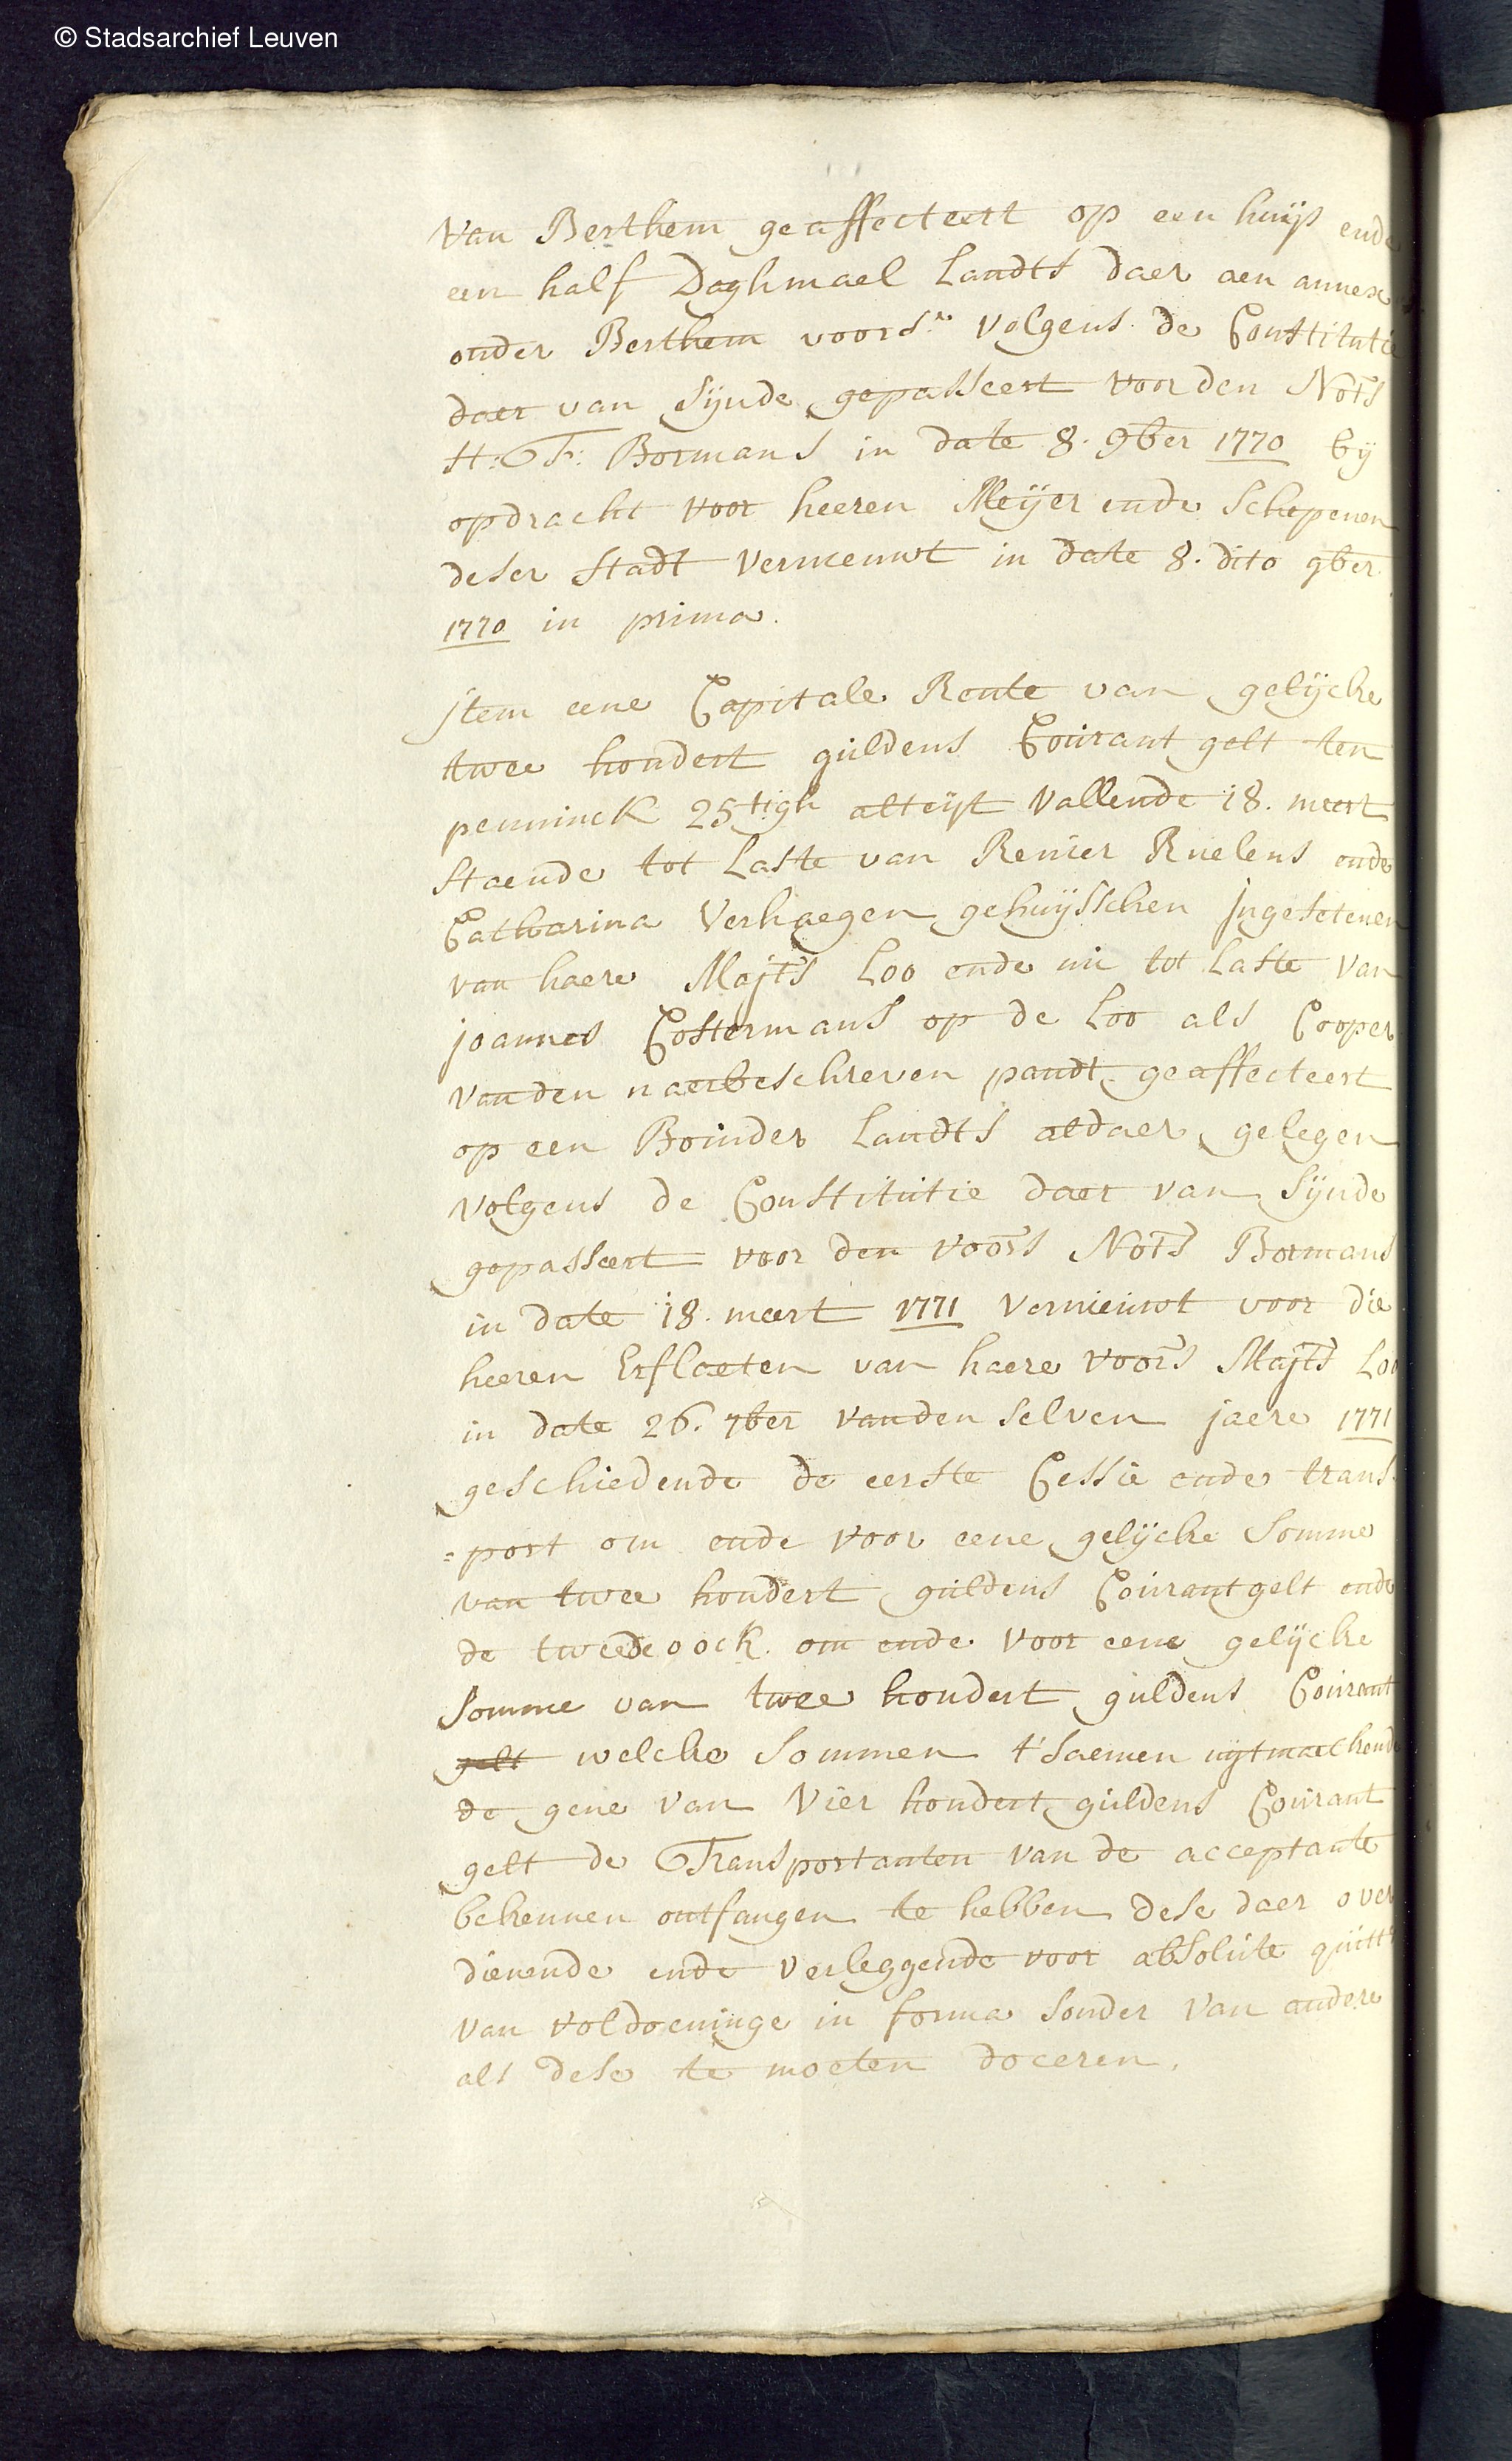 © Stadsarchief Leuven
Van Berthem geaffecteert op een huijs ende
een half Daghmael Landts daer aen annex
onder Berthem voors.n volgens de Constitutie
daer van sijnde gepasseert voor den Nots
H: F: Bormans in date 8. 9ber 1770 bij
opdracht voor heeren Meijer ende schepenen
deser stadt vernieuwt in date 8. dito 9ber
1770 in prima.
jtem eene Capitale Rente van gelijcke
twee hondert guldens Courant gelt ten
penninck 25tigh altijt vallende 18. meert
staende tot Laste van Renier Ruelens ende
Catharina Verhaegen gehuijsschen jngesetenen
van haere Majts Loo ende nu tot Laste van
joannes Costermans op de Loo als Cooper
vanden naerbeschreven pandt geaffecteert
op een Boinder Landts aldaer gelegen
volgens de Constitutie daer van sijnde
gepasseert voor den voors Nots Bormans
in date 18. meert 1771 vernieuwt voor die
heeren Erflaeten van haere voors Majts Loo
in date 26. 7ber vanden selven jaere 1771
geschiedende de eerste Cessie ende trans-
=port om ende voor eene gelijcke somme
van twee hondert guldens Courant gelt ende
de tweede oock om ende voor eene gelijcke
somme van twee hondert guldens Courant
gelt welcke sommen t'saemen uijtmaeckende
de gene van vier hondert guldens Courant
gelt de Transportanten van de acceptante
bekennen ontfangen te hebben dese daer over
dienende ende verleggende voor absolute quittie
van voldoeninge in forma sonder van andere
als dese te moeten doceren.